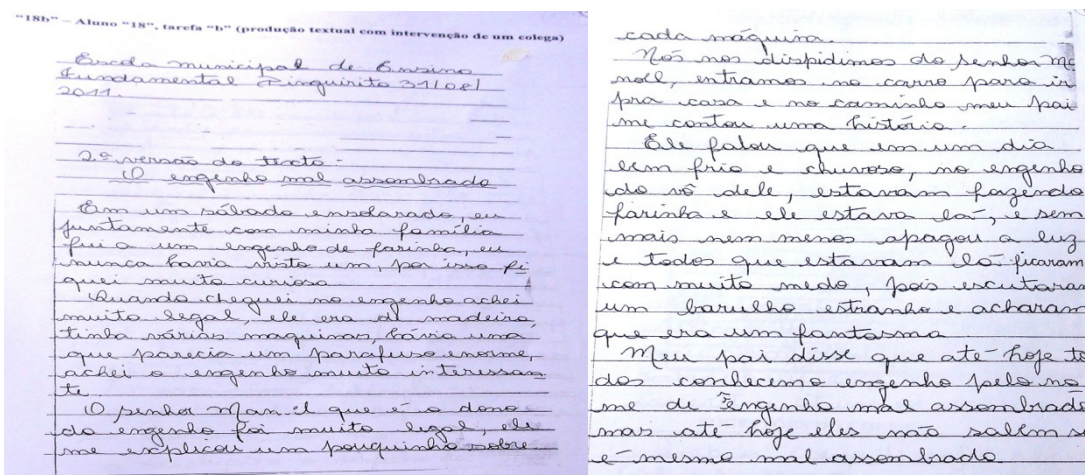 “18b” – Aluno “18”, tarefa “b” (produção textual com intervenção de um colega)
Escola municipal de Ensino
Fundamental Pinguirito 31/08/
2011.
2ª versão do texto -
O engenho mal assombrado
Em um sábado ensolarado, eu
juntamente com minha família
fui a um engenho de farinha, eu
nunca havia visto um, por isso fi
quei muito curiosa.
Quando cheguei no engenho achei
muito legal, ele era de madeira,
tinha várias maquinas, hávia uma
que parecia um parafuso enorme,
achei o engenho muito interessan
te.
O senhor Manoel que é o dono
do engenho foi muito legal, ele
me explicou um pouquinho sobre
cada máquina.
Nós nos dispidimos do senhor Ma
noel, entramos no carro para ir
pra casa e no caminho meu pai
me contou uma história.
Ele falou que em um dia
bem frio e chuvoso, no engenho
do vô dele, estavam fazendo
farinha e ele estava lá, e sem
mais nem menos apagou a luz
e todos que estavam lá ficaram
com muito medo, pois escutaram
um barulho estranho e acharam
que era um fantasma.
Meu pai disse que até hoje to
dos conhecem o engenho pelo no
me de Engenho mal assombrado
mas até hoje eles não sabem se
é mesmo mal assombrado